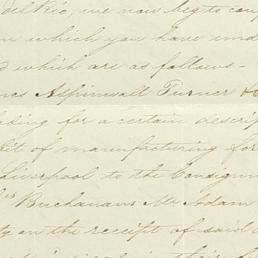 del Rio, we now beg to
in which you have
d which are as follows -
Aspinwall Turner &
ding for a certain descrip
it of manufacturing for
Liverpool to the Consign
Buchanans Mc Adam
ty on the receipt of said